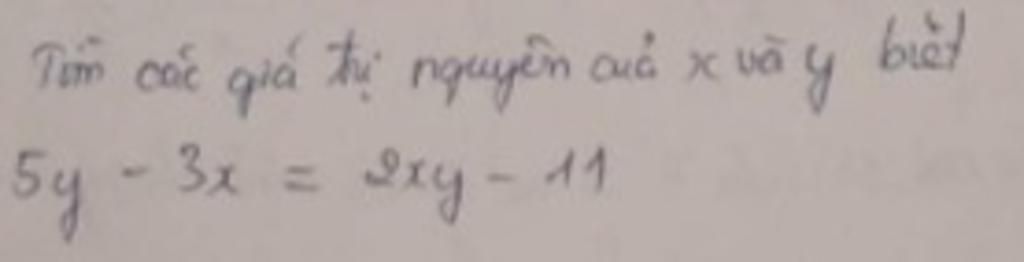 Tìm các giá trị nguyên của x và y biết
5y - 3x = 2xy - 11